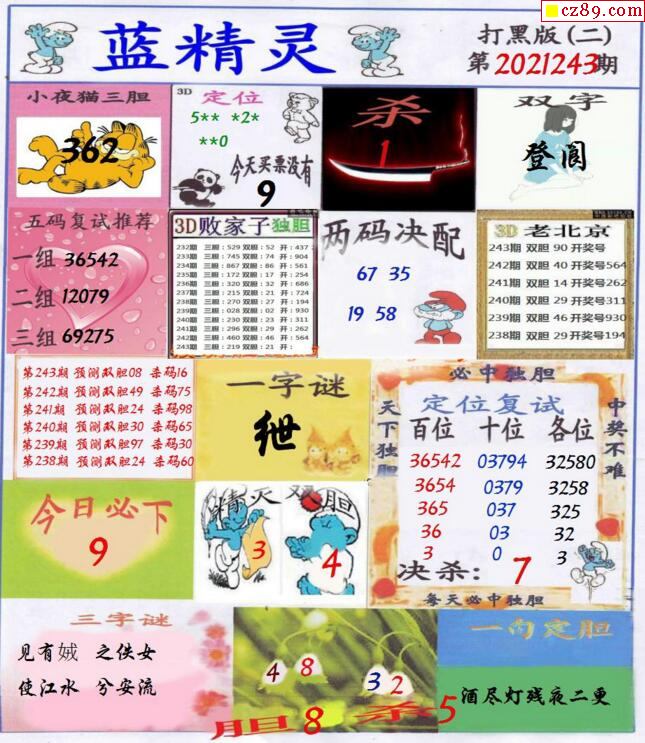 cz89.com
蓝精灵
打黑版(二)
第2021243期
小夜猫三胆
362
3D 定位
5** *2*
**0
今天买票没有
9
杀
1
双字
登阁
五码复试推荐
一组 36542
二组 12079
三组 69275
3D败家子独胆
232期 三胆：529 双胆：52 开：437
233期 三胆：074 双胆：74 开：904
234期 三胆：867 双胆：86 开：561
235期 三胆：172 双胆：17 开：254
236期 三胆：320 双胆：32 开：686
237期 三胆：215 双胆：21 开：724
238期 三胆：270 双胆：27 开：194
239期 三胆：028 双胆：02 开：930
240期 三胆：230 双胆：23 开：311
241期 三胆：296 双胆：29 开：262
242期 三胆：460 双胆：46 开：564
243期 三胆：219 双胆：21 开：
两码决配
67 35
19 58
3D老北京
243期 双胆 90 开奖号
242期 双胆 40 开奖号564
241期 双胆 14 开奖号262
240期 双胆 29 开奖号311
239期 双胆 46 开奖号930
238期 双胆 29 开奖号194
第243期 预测双胆08 杀码16
第242期 预测双胆49 杀码75
第241期 预测双胆24 杀码98
第240期 预测双胆30 杀码65
第239期 预测双胆97 杀码30
第238期 预测双胆24 杀码60
一字谜
绁
必中独胆
天下独胆
中奖不难
定位复试
百位 十位 各位
36542 03794 32580
3654 0379 3258
365 037 325
36 03 32
3 0 3
决杀：7
每天必中独胆
今日必下
9
精灵双胆
3 4
三字谜
见有娀 之佚女
使江水 兮安流
4 8
3 2
胆8 杀5
一句定胆
酒尽灯残夜二更